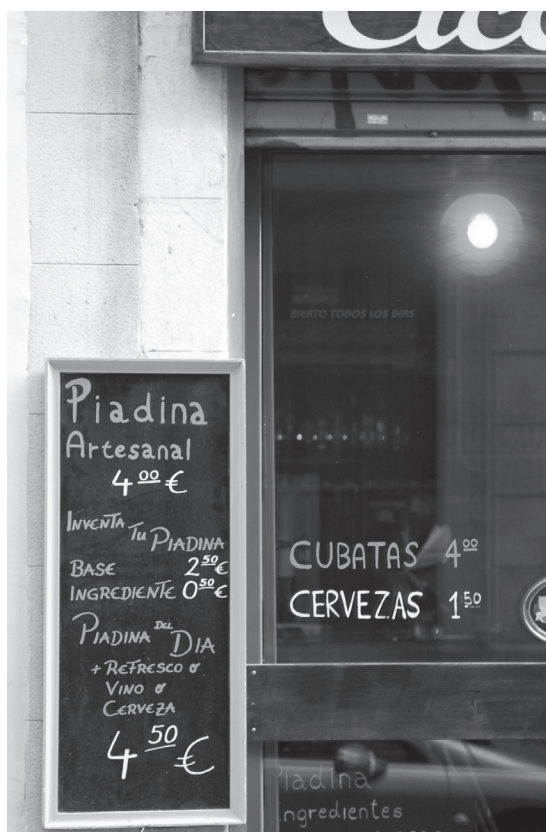 BIERTO TODOS LOS DIAS
Piadina
Artesanal
4 00 €
INVENTA TU PIADINA
BASE 2 50 €
INGREDIENTE 0 50 €
PIADINA DEL DIA
+ REFRESCO o
VINO o
CERVEZA
4 50 €
CUBATAS 4 00
CERVEZAS 1 50
iadina
ingredientes